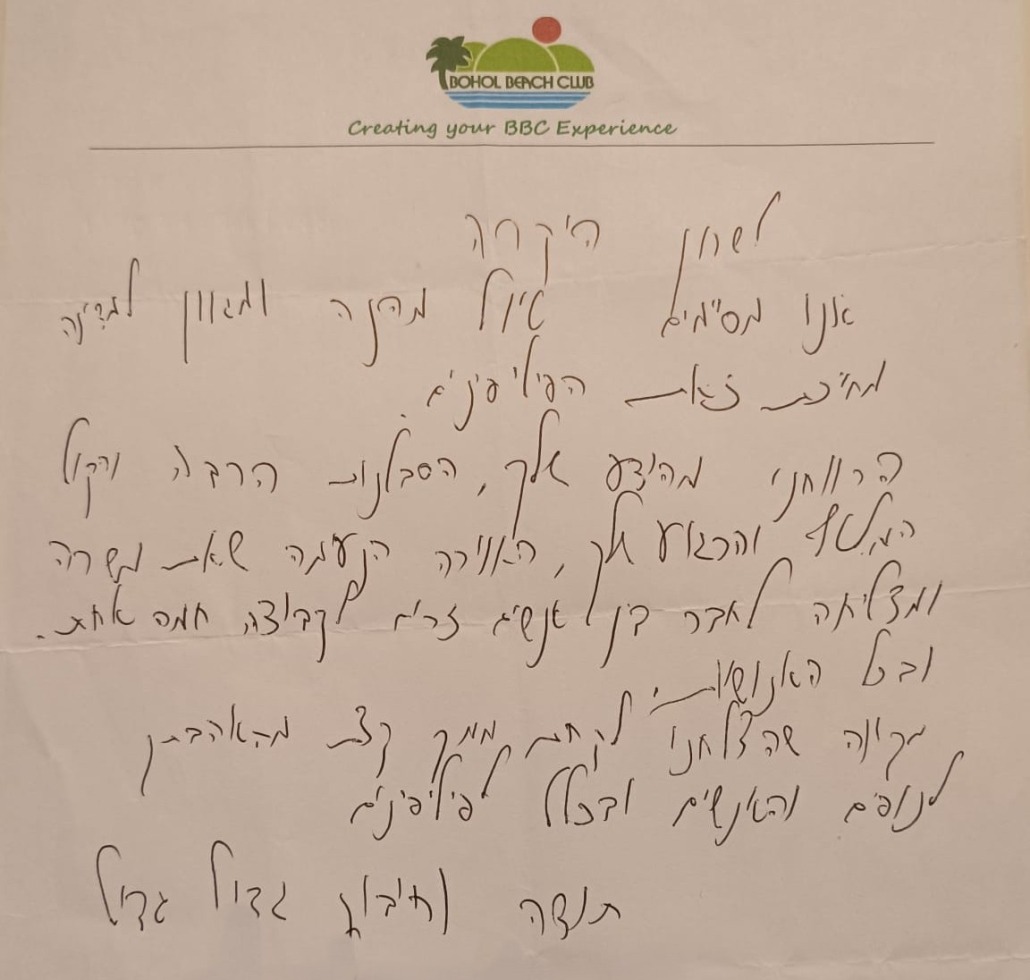 BOHOL BEACH CLUB
Creating your BBC Experience
לשרון היקרה
אנו מסיימים טיול מהנה ומגוון למדינה
מחייכת כזאת הפיליפינים.
הרווחנו מהידע שלך, הסבלנות הרבה והקול
המלטף והרגוע שלך, האווירה הנעימה שאת משרה
ומצליחה לחבר בין אנשים זרים לקבוצה חמה אחת.
ובכל האנושיות
מקווה שהצלחנו לקחת ממך קצת מהאהבתך
לנופים והאנשים ובכלל לפיליפינים
תודה וחיבוק גדול גדול